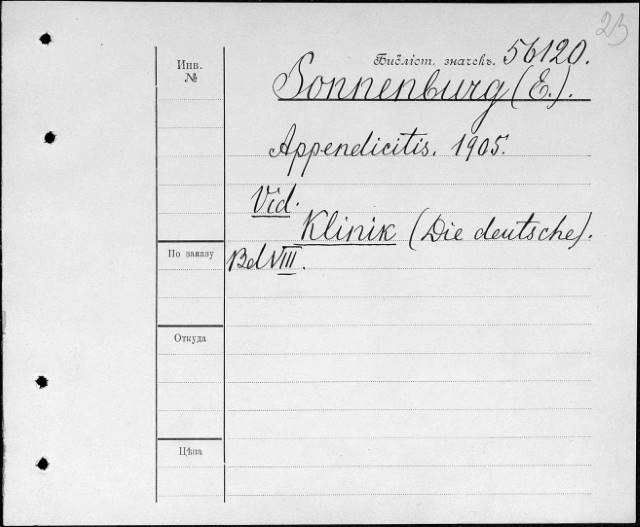 23
Инв.
№
Библіот. значекъ. 56120.
Sonnenburg (E.).
Appendicitis. 1905.
Vid.
Klinik (Die deutsche).
Bd VIII.
По заказу
Откуда
Цѣна